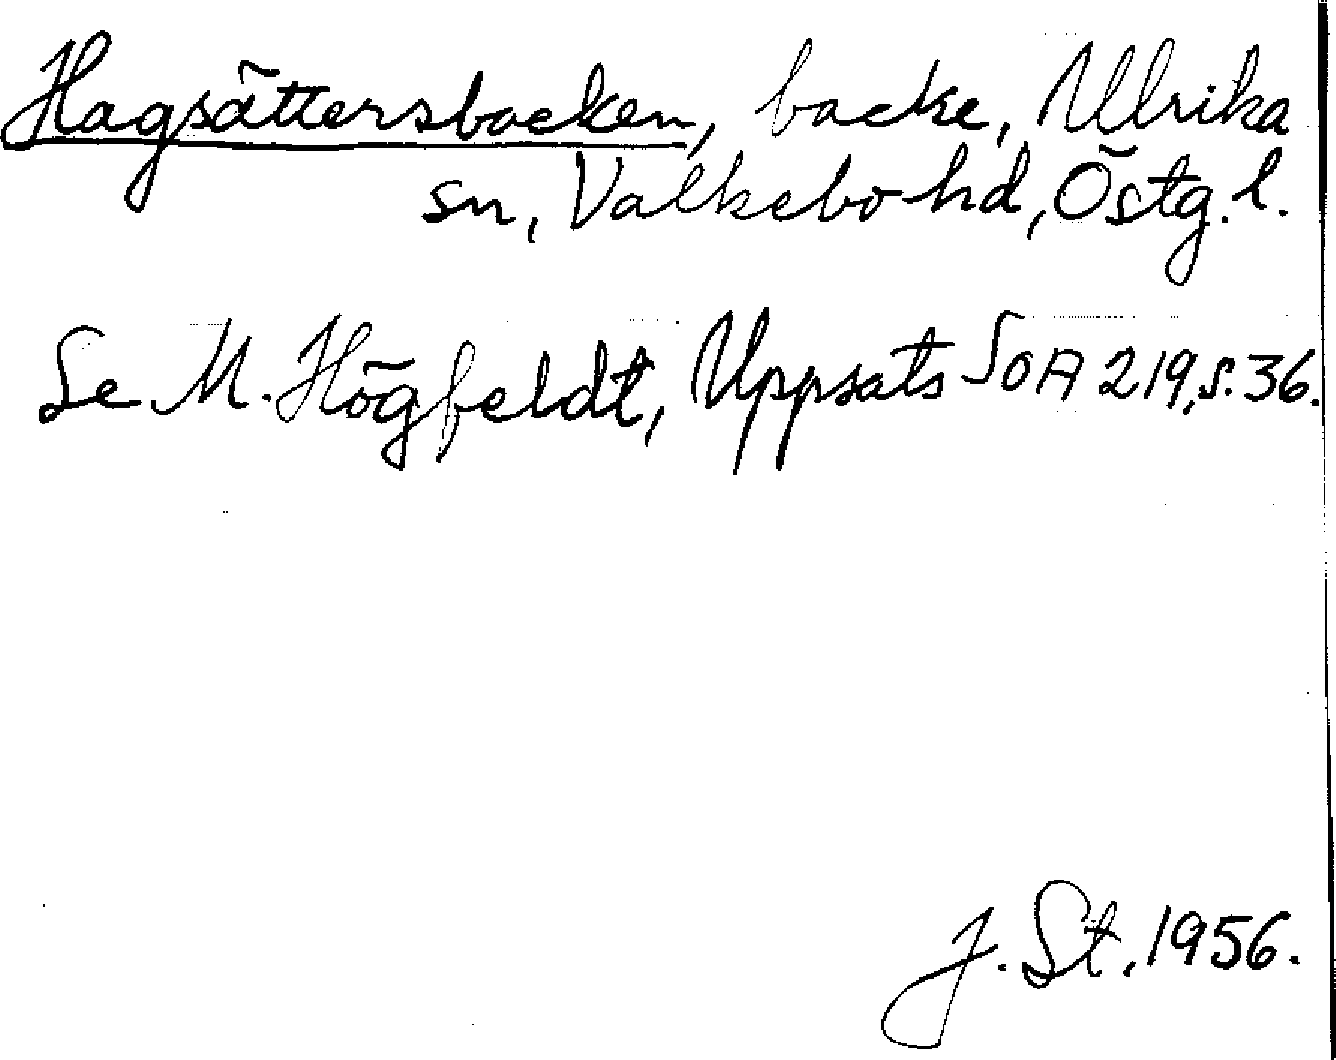 Hagsättersbacken, backe, Ulrika
sn, Valkebo hd, Östg. l.
Se M. Högfeldt, Uppsats SOA 219, s. 36.
J. St. 1956.